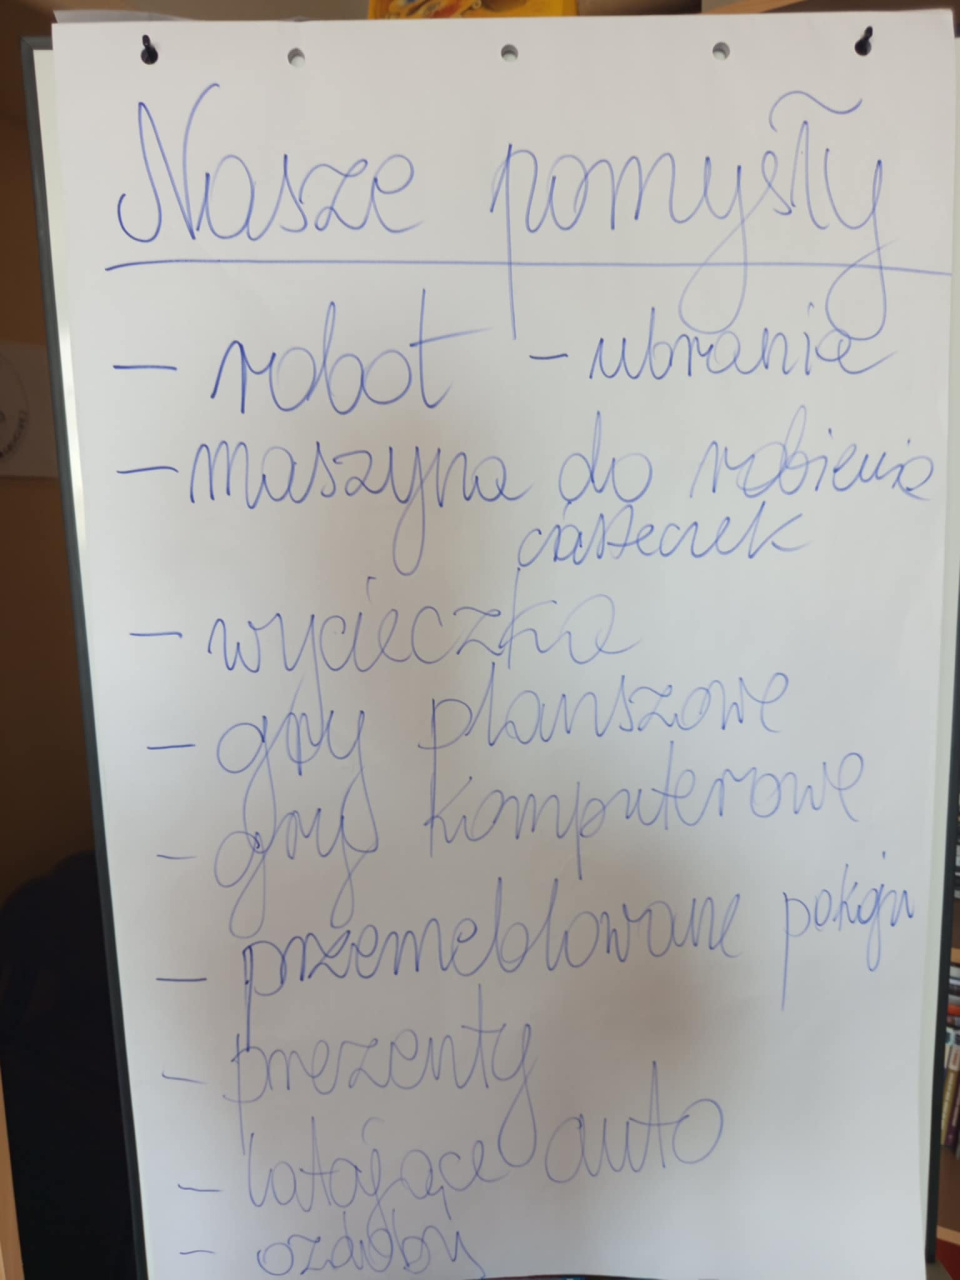 Nasze pomysły
- robot - ubranie
- maszyna do robienia
ciasteczek
- wycieczka
- gry planszowe
- gry komputerowe
- przemeblowane pokoju
- prezenty
- latające auto
- ozdoby